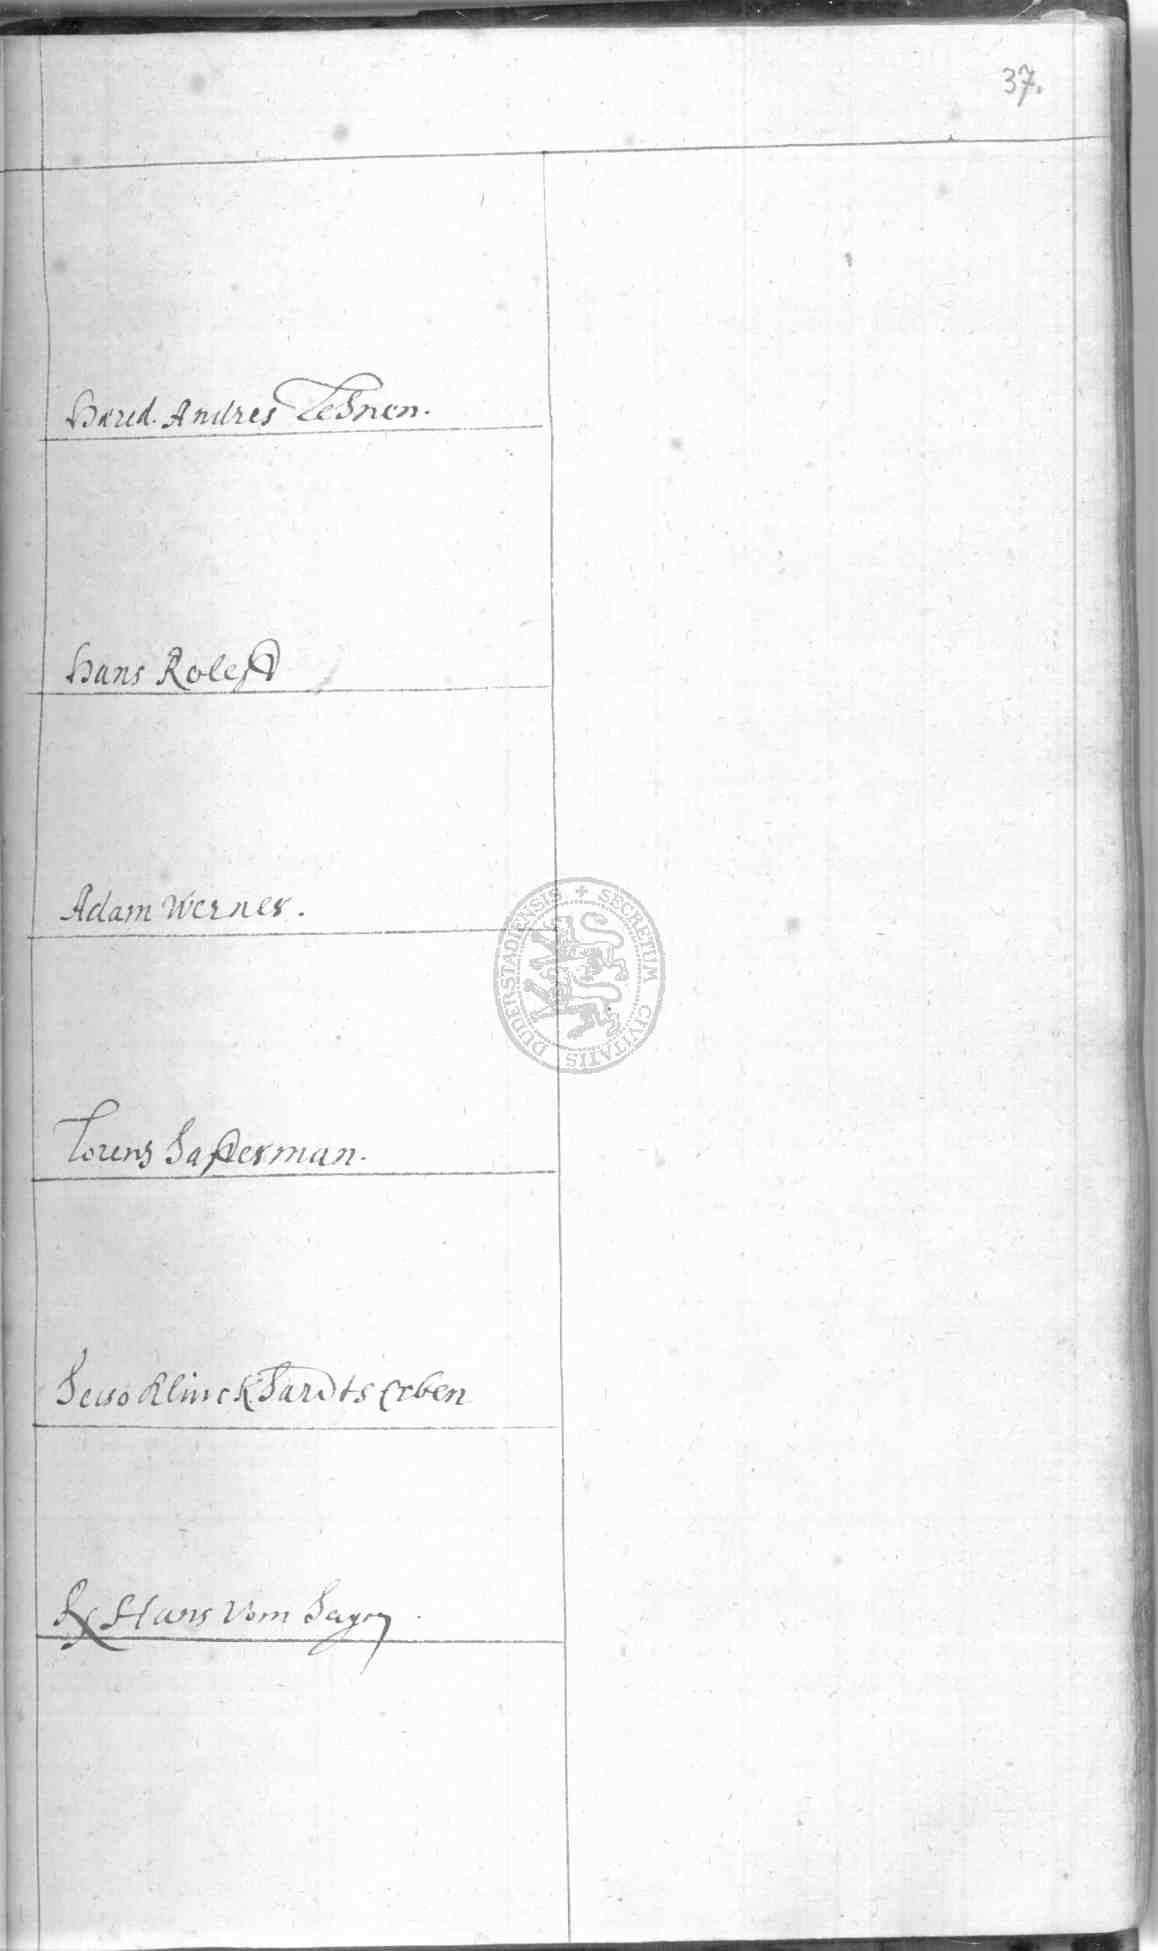 37.
Hæred. Andres Lehnen.
Hans Roleff
Adam Werner.
Lorens Hasterman.
Heiso Klinckhardts Erben
Hans Vom Hagen
DUDERSTADIENSIS + SECRETUM CIVITATIS